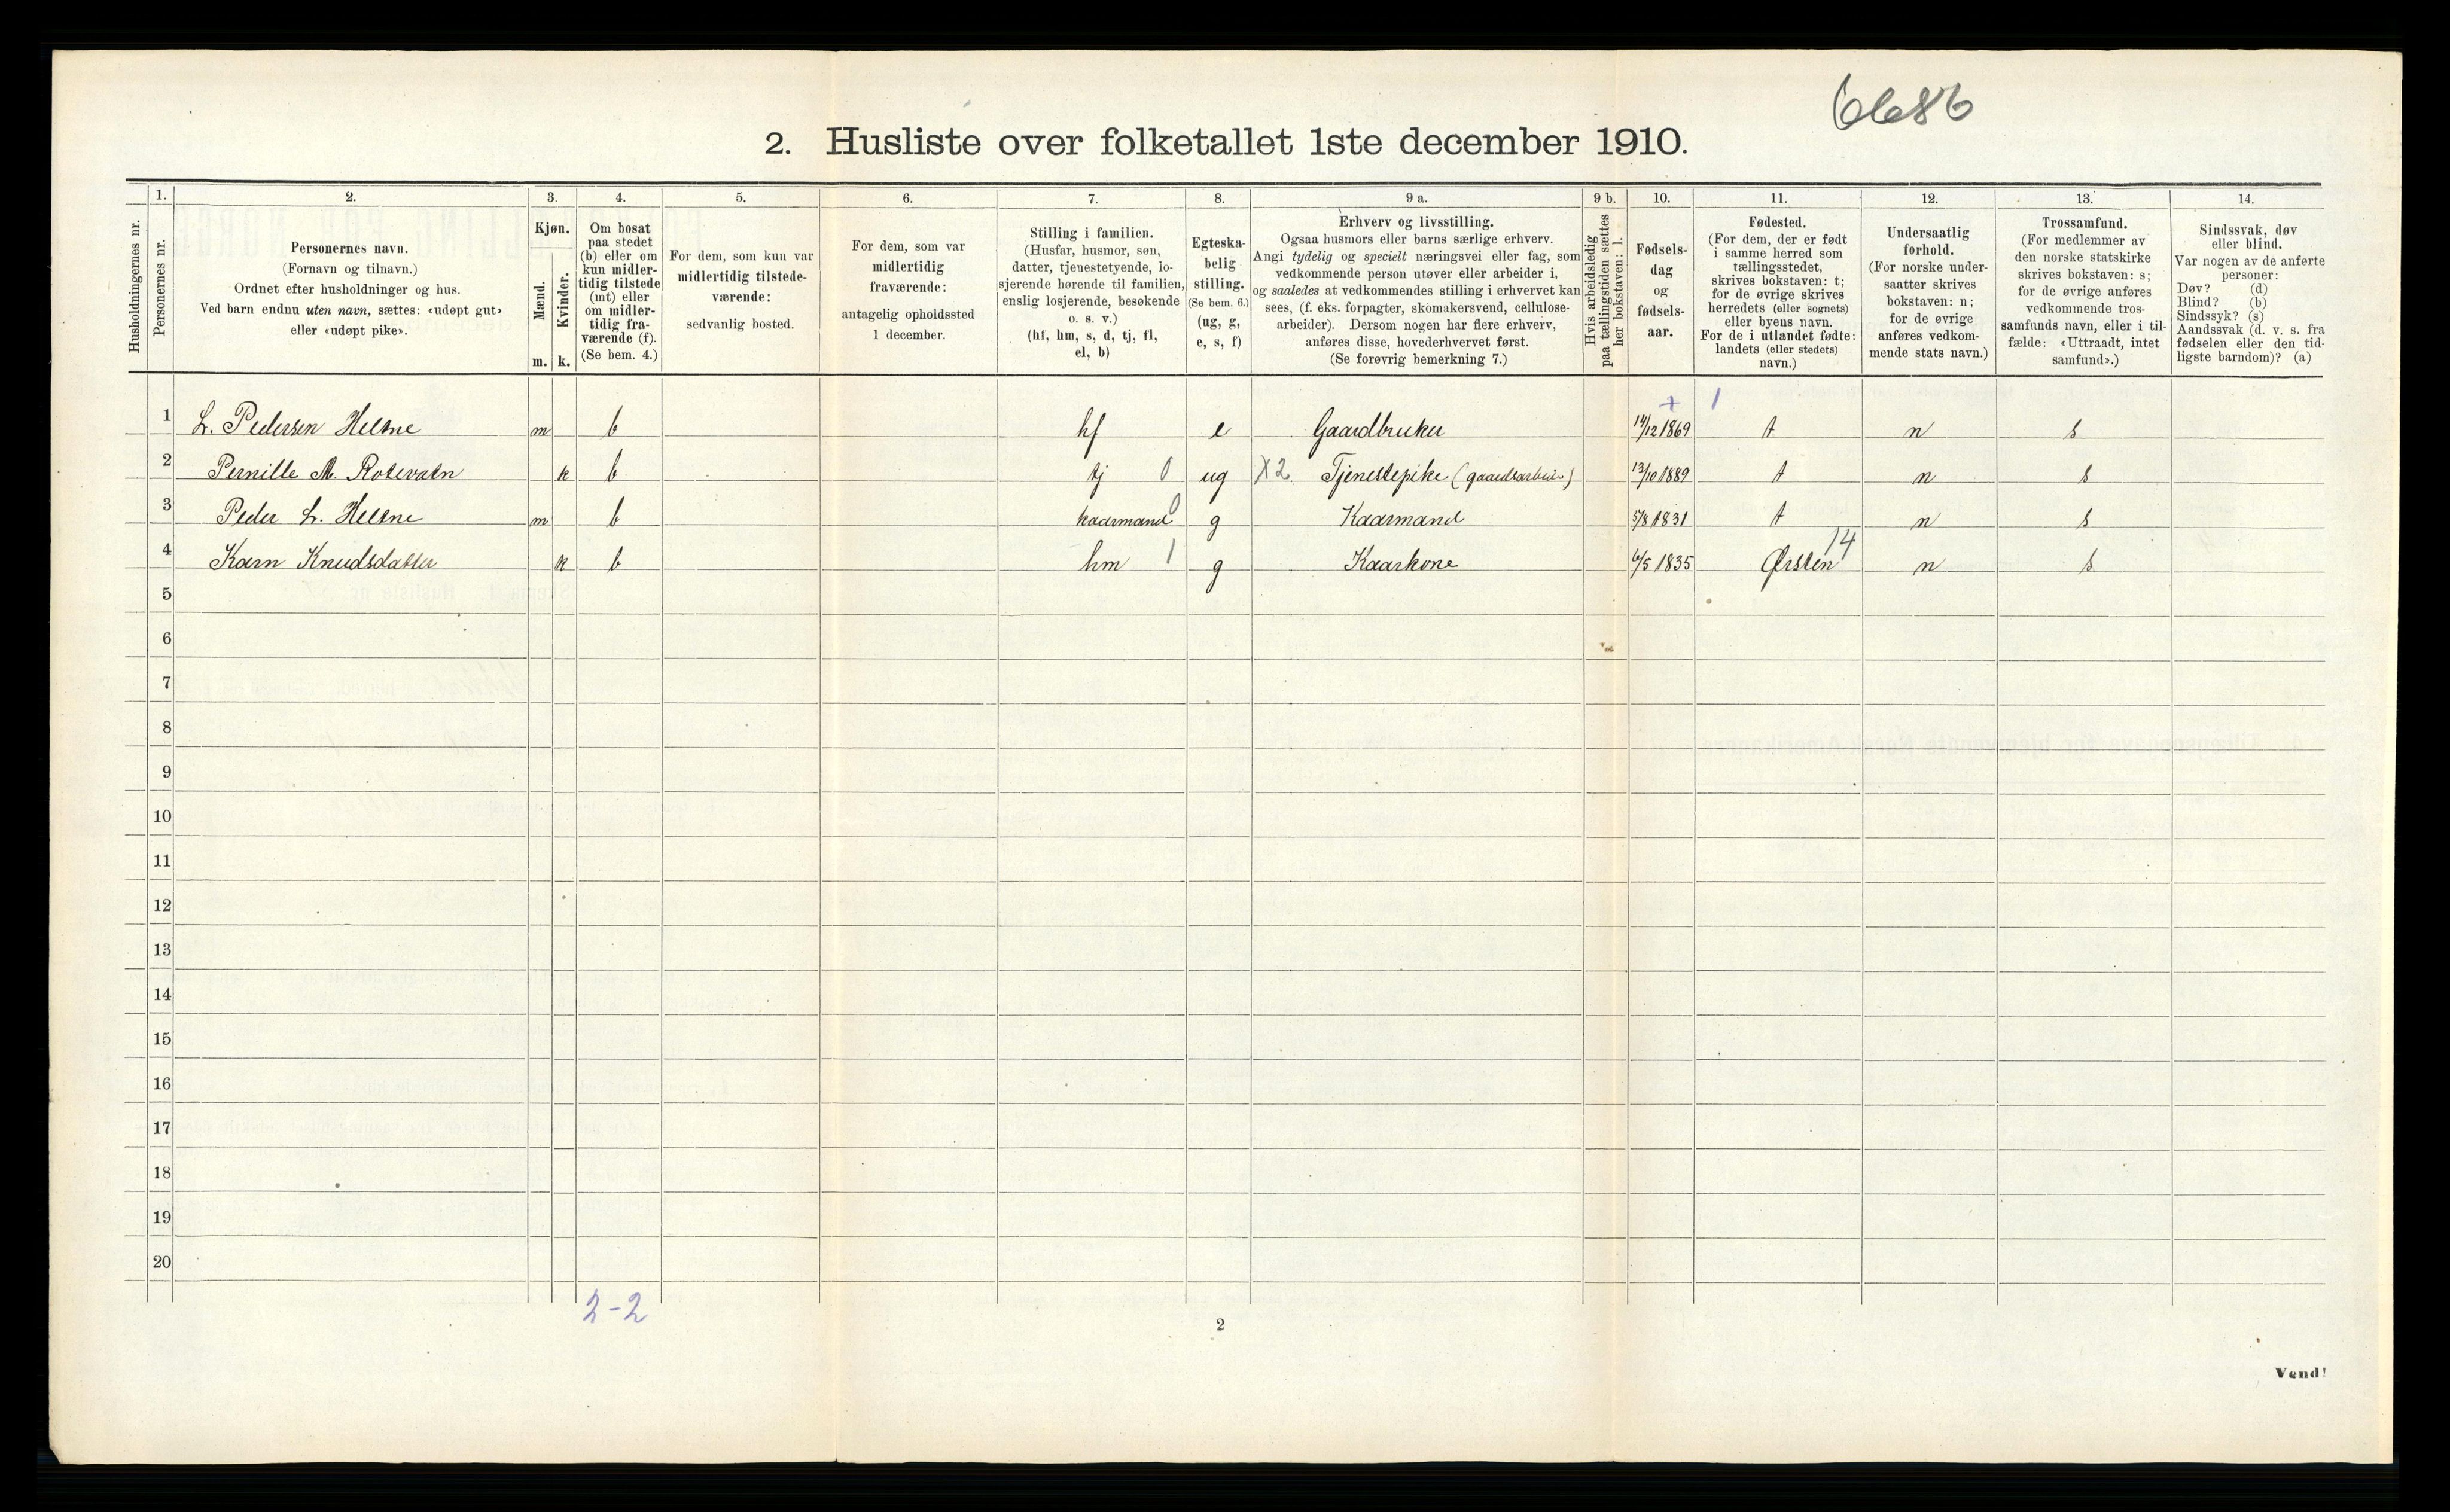 6686
2. Husliste over folketallet 1ste december 1910.
Husholdningernes nr.
1.
Personernes nr.
2.
Personernes navn.
(Fornavn og tilnavn.)
Ordnet efter husholdninger og hus.
Ved barn endnu uten navn, sættes: «udøpt gut»
eller «udøpt pike».
3.
Kjøn.
Mænd.
m.
Kvinder.
k.
4.
Om bosat
paa stedet
(b) eller om
kun midler-
tidig tilstede
(mt) eller
om midler-
tidig fra-
værende (f).
(Se bem. 4.)
5.
For dem, som kun var
midlertidig tilstede-
værende:
sedvanlig bosted.
6.
For dem, som var
midlertidig
fraværende:
antagelig opholdssted
1 december.
7.
Stilling i familien.
(Husfar, husmor, søn,
datter, tjenestetyende, lo-
sjerende hørende til familien,
enslig losjerende, besøkende
o. s. v.)
(hf, hm, s, d, tj, fl,
el, b)
8.
Egteska-
belig
stilling.
(Se bem. 6.)
(ug, g,
e, s, f)
9 a.
Erhverv og livsstilling.
Ogsaa husmors eller barns særlige erhverv.
Angi tydelig og specielt næringsvei eller fag, som
vedkommende person utøver eller arbeider i,
og saaledes at vedkommendes stilling i erhvervet kan
sees, (f. eks. forpagter, skomakersvend, cellulose-
arbeider). Dersom nogen har flere erhverv,
anføres disse, hovederhvervet først.
(Se forøvrig bemerkning 7.)
9 b.
Hvis arbeidsledig
paa tællingstiden sættes
her bokstaven: l.
10.
Fødsels-
dag
og
fødsels-
aar.
11.
Fødested.
(For dem, der er født
i samme herred som
tællingsstedet,
skrives bokstaven: t;
for de øvrige skrives
herredets (eller sognets)
eller byens navn.
For de i utlandet fødte:
landets (eller stedets)
navn.)
12.
Undersaatlig
forhold.
(For norske under-
saatter skrives
bokstaven: n;
for de øvrige
anføres vedkom-
mende stats navn.)
13.
Trossamfund.
(For medlemmer av
den norske statskirke
skrives bokstaven: s;
for de øvrige anføres
vedkommende tros-
samfunds navn, eller i til-
fælde: «Uttraadt, intet
samfund».)
14.
Sindssvak, døv
eller blind.
Var nogen av de anførte
personer:
Døv? (d)
Blind? (b)
Sindssyk? (s)
Aandssvak (d. v. s. fra
fødselen eller den tid-
ligste barndom)? (a)
+ 1
1 L. Pedersen Helsne m b hf e Gaardbruker 14/12 1869 t n s
2 Pernille M. Rotevatn k b tj 0 ug X2 Tjenestepike (gaardsarbeide) 13/10 1889 t n s
3 Peder L. Helsne m b kaarmand 0 g Kaarmand 5/8 1831 t n s
4 Karn Knudsdatter k b hm 1 g Kaarkone 6/5 1835 Ørsten 14 n s
5
6
7
8
9
10
11
12
13
14
15
16
17
18
19
20
2-2
2
Vend!